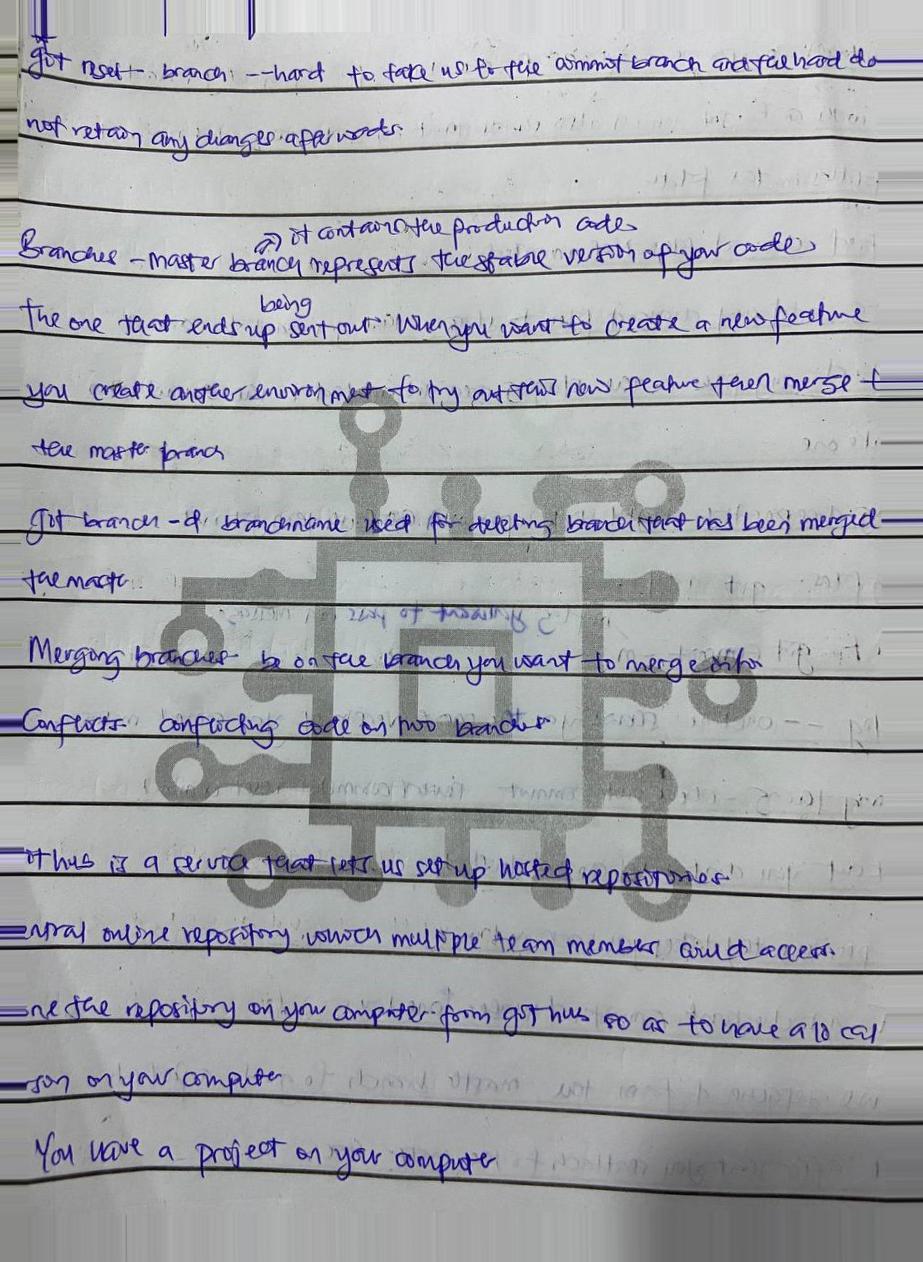 git reset branch --hard to take us to the commit branch and the hard do
not retain any changes afterwards.
it contains the production code
Branches - master branch represents the stable version of your code,
being
The one that ends up sent out. When you want to create a new feature
you create another environment to try out this new feature then merge t
the master branch
git branch -d branchname used for deleting branch that has been merged
the maste
Merging branches be on the branch you want to merge onto
Conflicts conflicting code on two branches
ithub is a service that lets us set up hosted repositories
entral online repository which multiple team member could access.
one the repository on your computer from git hub so as to have a local
rsion on your computer
You have a project on your computer